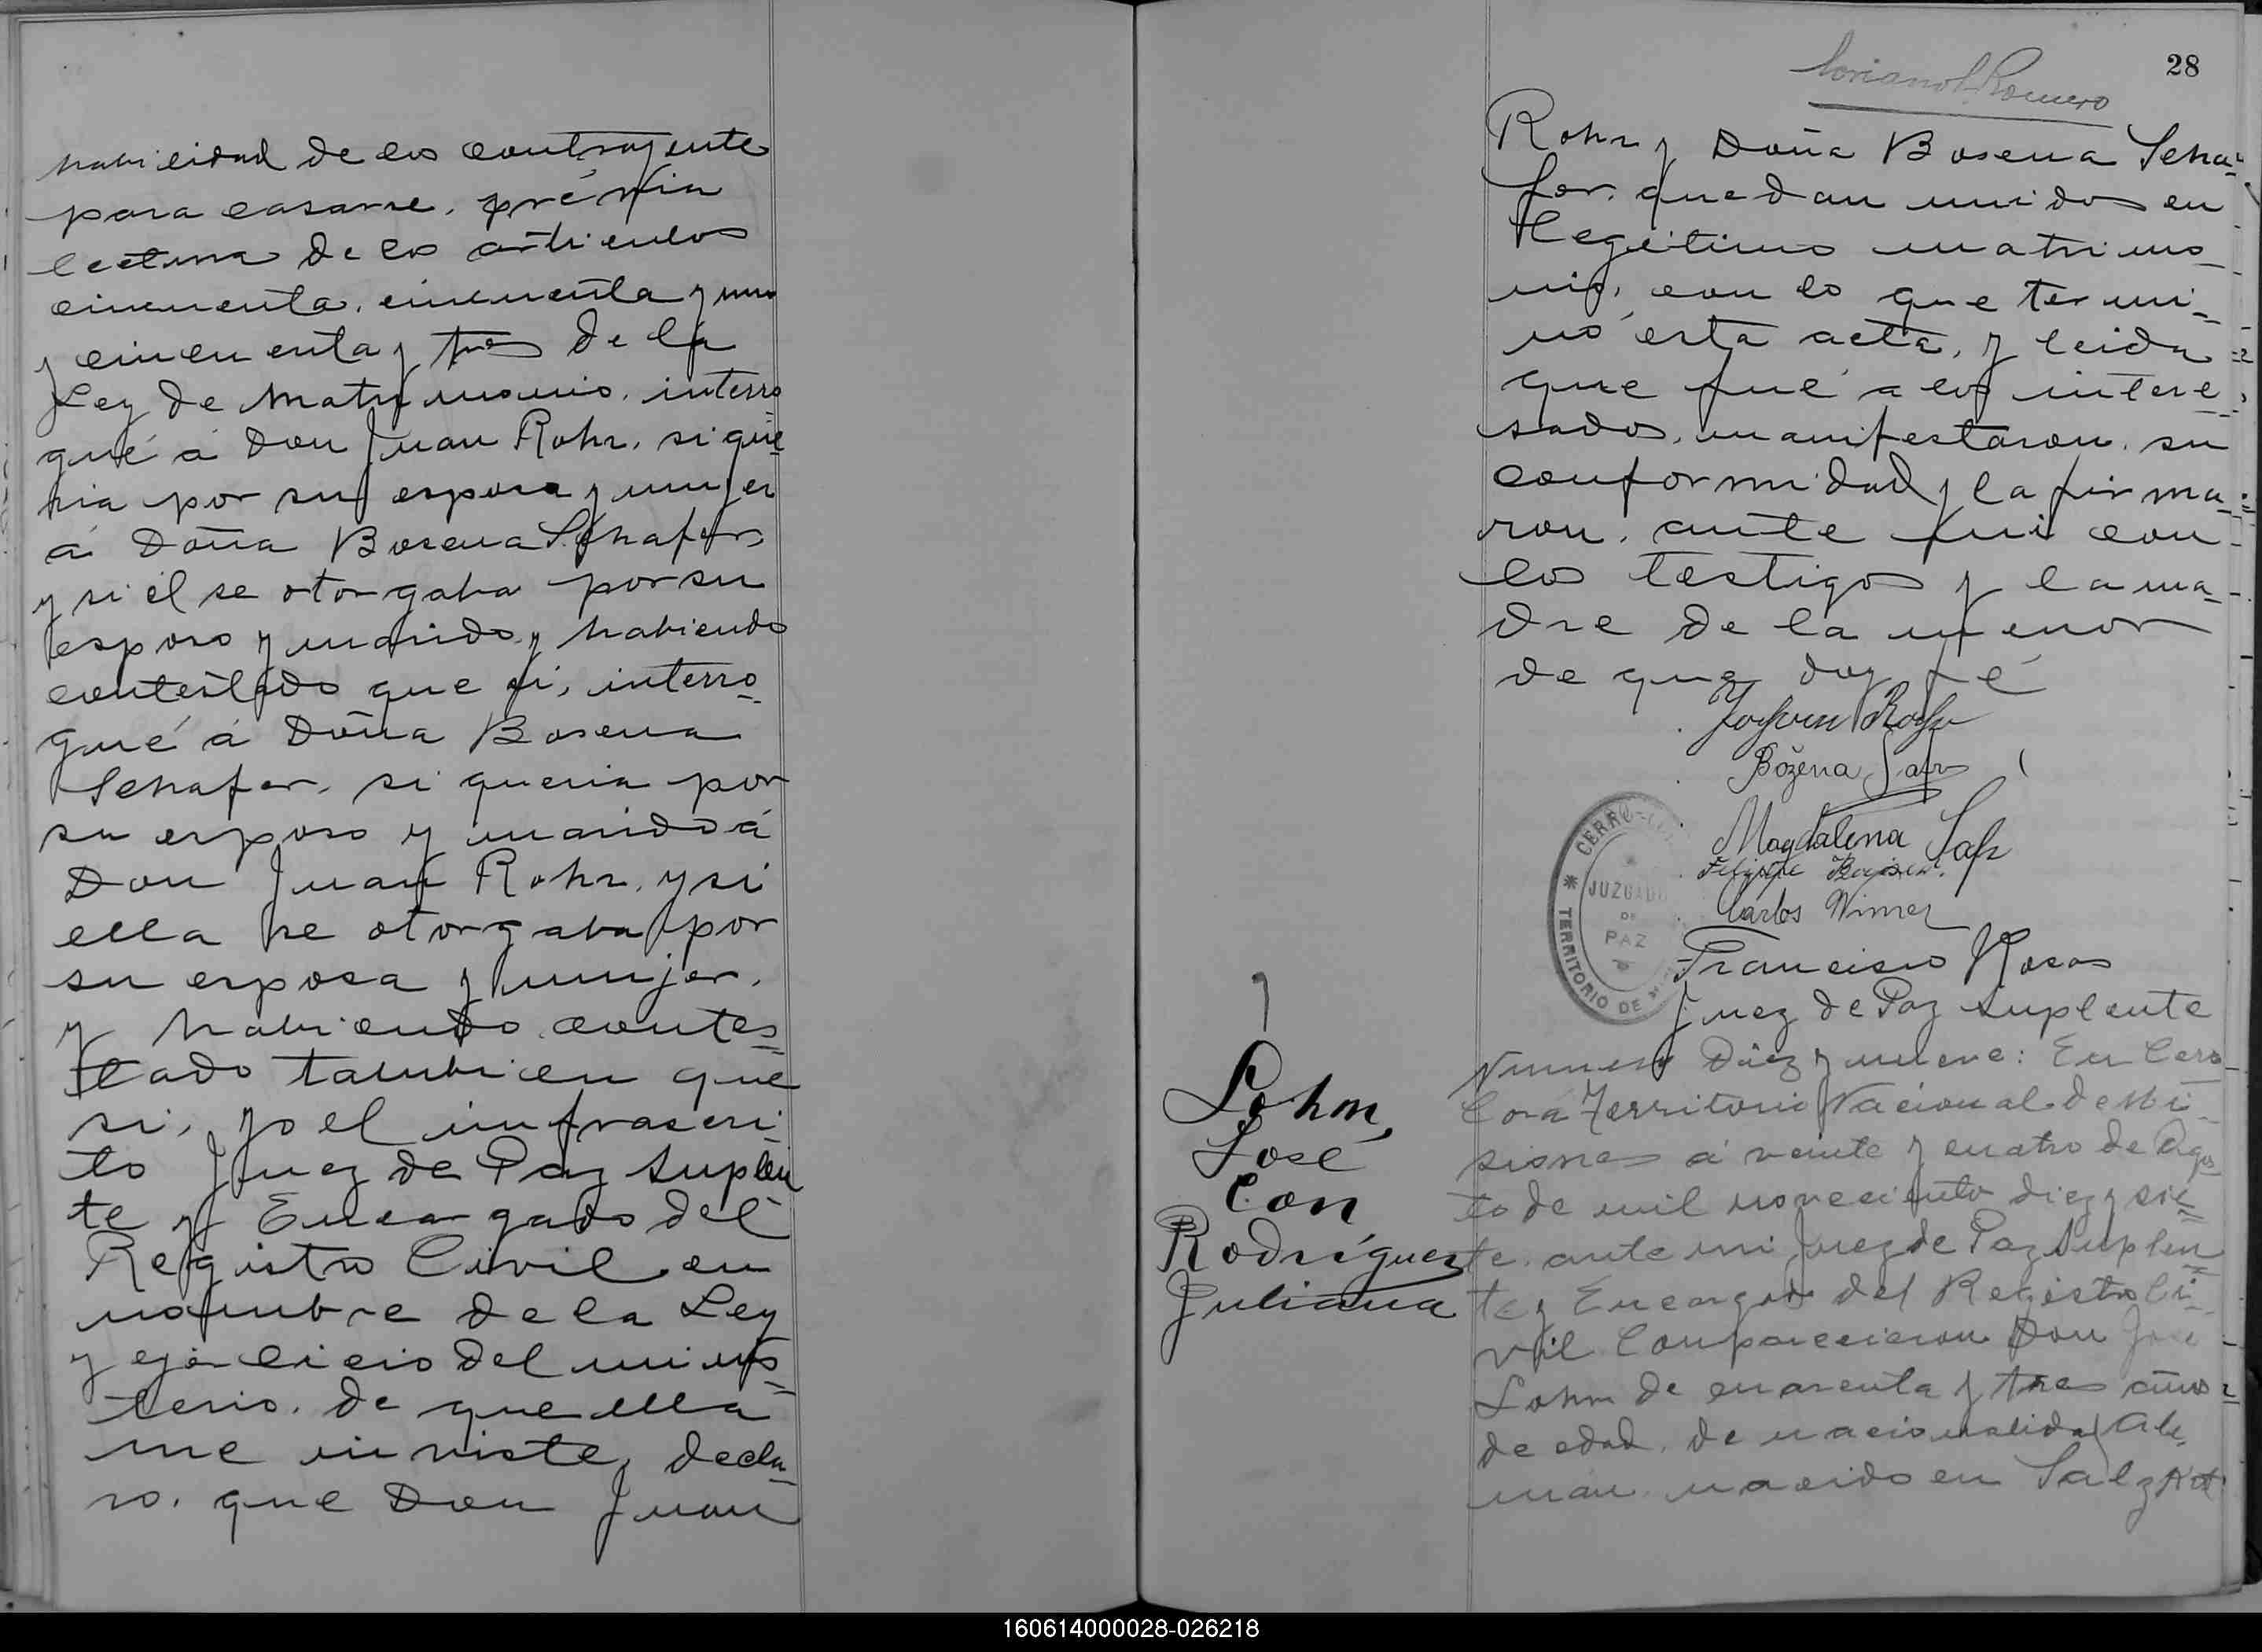 habilidad de los contrayentes
para casarse, prévia
lectura de los artículos
cincuenta, cincuenta y uno
y cincuenta y tres de la
Ley de Matrimonio, interro-
gué á Don Juan Rohr, si que-
ria por su esposa y mujer
á Doña Bosena Schafer,
y si él se otorgaba por su
esposo y marido y habiendo
contestado que si, interro-
gué á Doña Bosena
Schafer, si queria por
su esposo y marido á
Don Juan Rohr, y si
ella se otorgaba por
su esposa y mujer,
y habiendo contes-
tado tambien que
si, yo el infrascri-
to Juez de Paz Suplen
te y Encargado del
Registro Civil en
nombre de la Ley
y ejercicio del minis-
terio, de que ella
me inviste, decla-
ro, que Don Juan
28
Romero
Rohr y Doña Bosena Scha-
fer, quedan unidos en
legítimo matrimo-
nio, con lo que termi-
nó esta acta, y leida
que fué a los intere-
sados, manifestaron su
conformidad y la firma-
ron, ante mi con
los testigos y la ma-
dre de la menor
de que doy fé
Rohr
Božena Šafr
Magdalena Šafr
Felipe
Carlos Wimer
Francisco Rosas
Juez de Paz Suplente
CERRO-
JUZGADO
DE
PAZ
* TERRITORIO DE
Lohm
José
Con
Rodríguez
Juliana
Numero Diez y nueve: En Cerro
Corá Territorio Nacional de Mi-
siones á veinte y cuatro de Agos-
to de mil novecientos diez y sie-
te, ante mi Juez de Paz Suplen
te y Encargado del Registro Ci-
vil Comparecieron Don José
Lohm de cuarenta y tres años
de edad, de nacionalidad Ale-
man, nacido en
160614000028-026218